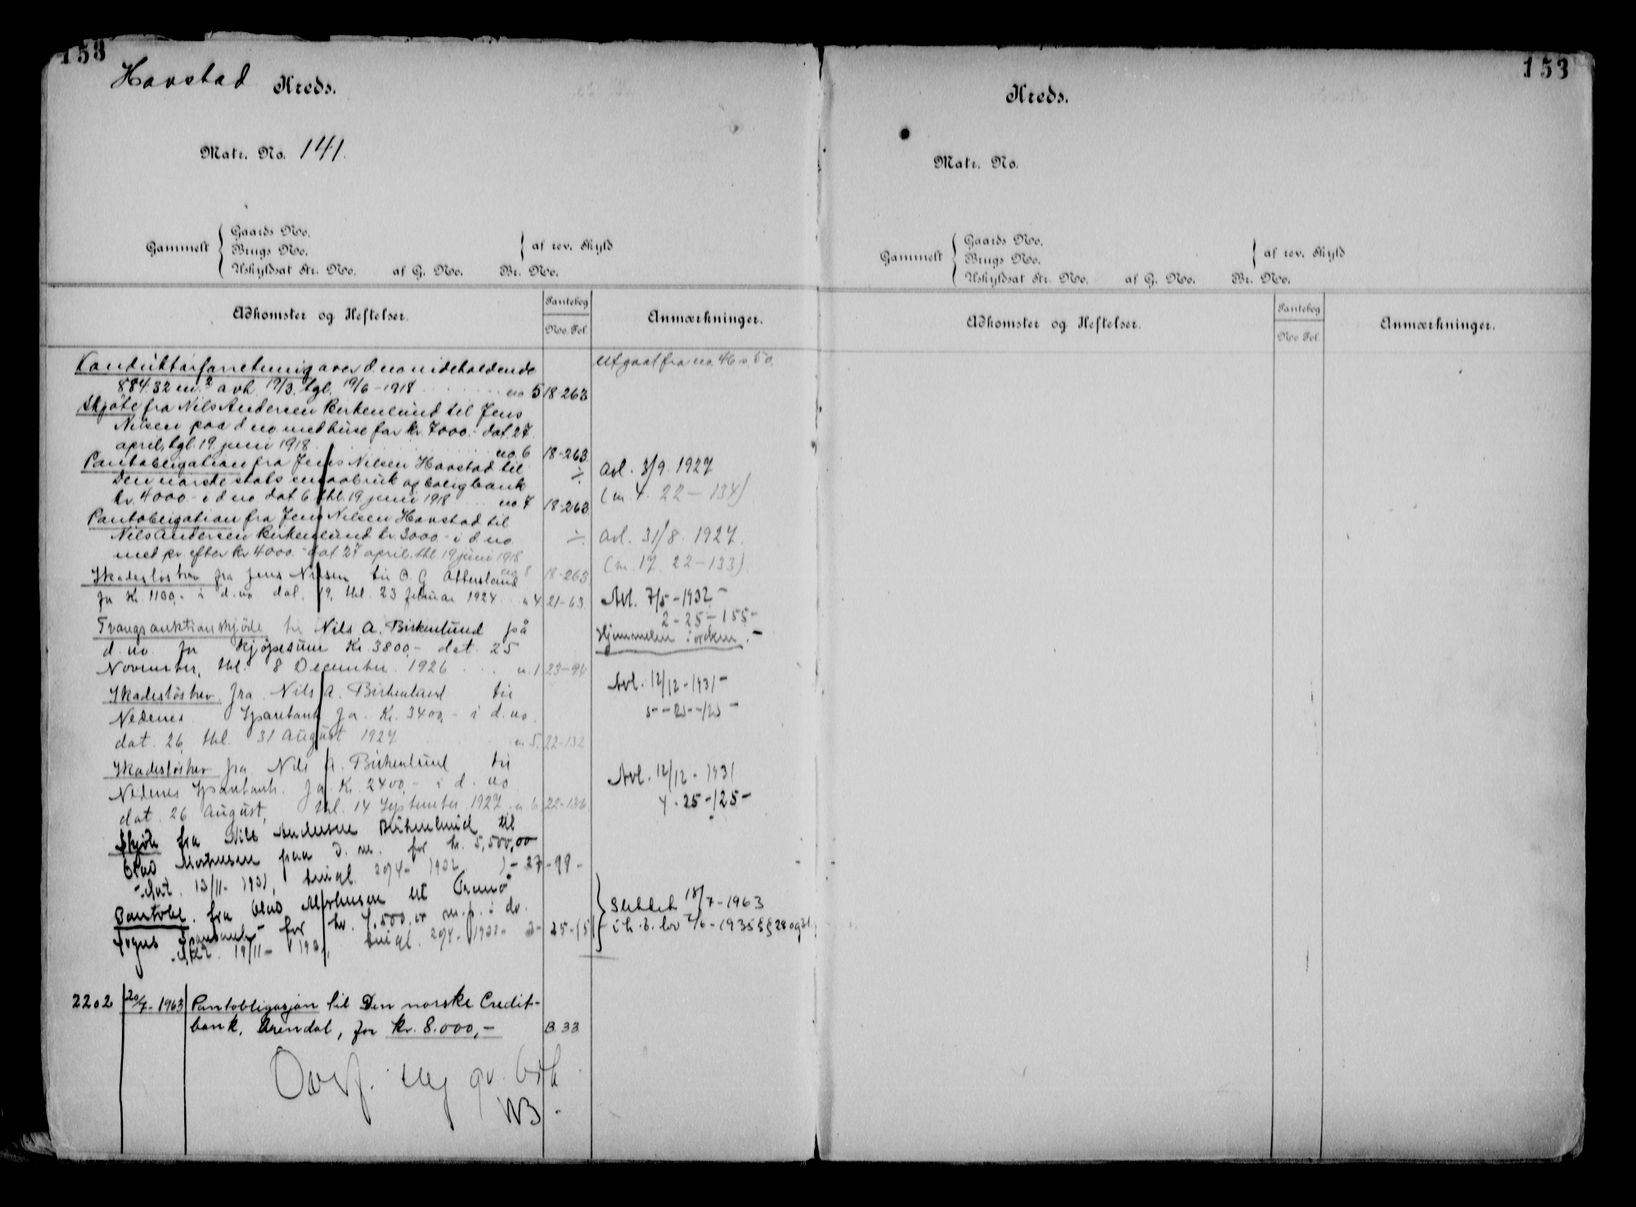 153
153
Havstad Kreds.
Matr. No. 141.
Gammelt
Gaards No.
Brugs No.
Uskyldsat Str. No. af G. No. Br. No.
af rev. Skyld
Adkomster og Heftelser.
Pantebog
No. Fol.
Anmærkninger.
Konduktørforretning over d no indeholdende
884.32 m² avh. 19/3. tgl. 19/6 - 1918 no 5 18-263
Utgaat fra no. 46 s. 50.
Skjøte fra Nils Andersen Birkenlund til Jens
Nilsen paa d no med huse for kr. 7000.- dat. 27
april, tgl. 19. juni 1918 no 6 18-263
Pantobligation fra Jens Nilsen Havstad til
Den norske stats smaabruk og boligbank
kr. 4000.- i d no dat 6 thl. 19 juni 1918 no 7 18-263
Avl. 3/9. 1927
( 22 - 134)
Pantobligation fra Jens Nilsen Havstad til
Nils Andersen Birkenlund kr. 3000.- i d no
med pr. efter kr 4000.- dat 27 april, thl. 19 juni 1918 no 8 18-263
Avl. 31/8. 1927.
( 17. 22-133).
Skadesløsbrev fra Jens Nilsen til O. G.
for Kr. 1100,- i d. no dat. 19, thl. 23 februar 1924 n 4 21-63
Avl. 7/5 - 1932 -
2-25-155-
Tvangsauktionsskjøde til Nils A. Birkenlund på
d. no for kjøpesum Kr. 3800,- dat. 25
November, thl. 8 December 1926 n. 1 23-94
Hjemmelen i orden. -
Skadesløsbrev fra Nils A. Birkenlund til
Nedenes Sparebank for Kr. 3400,- i d. no.
dat. 26, thl. 31 August 1927 n 5. 22-132
Avl. 12/12 - 1931 -
Skadesløsbrev fra Nils A. Birkenlund til
Nedenes Sparebank for Kr. 2400,- i d. no
dat. 26 August, thl. 14 September 1927 n. 6 22-136
Avl. 12/12 - 1931
4 - 25 - 125 -
Skjøde fra Nils Andersen Birkenlund til
Olav Mortensen paa d. no. for kr. 5,500,00
dat. 13/11 - 1931, tingl. 29/4 - 1932 1 - 27-99 -
Pantobl. fra Olav Mortensen til Tromø
Sogns Sparebank for kr. 4,500,00 m.p. i do.
dat. 19/11 - 1931, tingl. 29/4 - 1932 - 3 - 25-151
Slettet 18/7 - 1963
i h. t. lov 7/6 - 1935 §§ 28 og 31.
2202 20/7 - 1963 Pantobligasjon til Den norske Credit-
bank, Arendal, for kr. 8.000,- B. 33
Overf. ny gr. bok
WB.
Kreds.
Matr. No.
Gammelt
Gaards No.
Brugs No.
Uskyldsat Str. No. af G. No. Br. No.
af rev. Skyld
Adkomster og Heftelser.
Pantebog
No. Fol.
Anmærkninger.